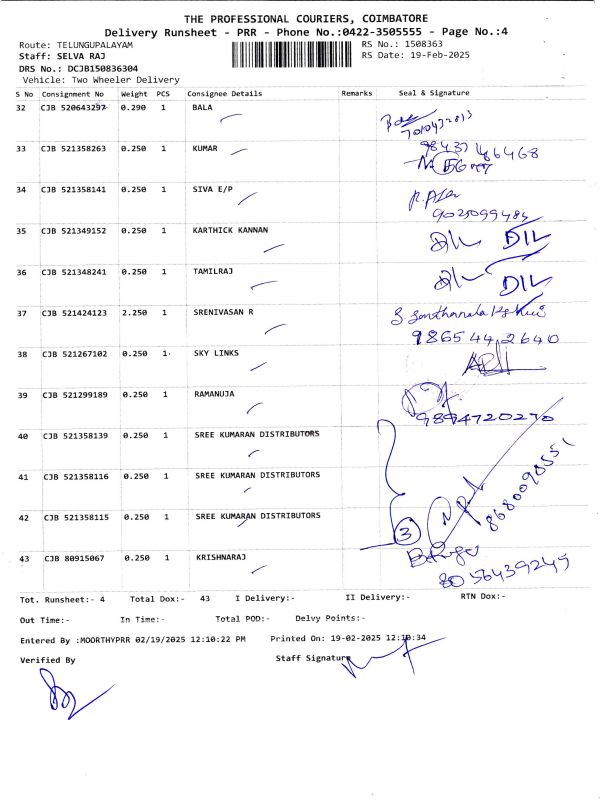 THE PROFESSIONAL COURIERS, COIMBATORE
Delivery Runsheet - PRR - Phone No.:0422-3505555 - Page No.:4
Route: TELUNGUPALAYAM RS No.: 1508363
Staff: SELVA RAJ RS Date: 19-Feb-2025
DRS No.: DCJB150836304
Vehicle: Two Wheeler Delivery
S No Consignment No Weight PCS Consignee Details Remarks Seal & Signature
32 CJB 520643297 0.290 1 BALA
33 CJB 521358263 0.250 1 KUMAR
34 CJB 521358141 0.250 1 SIVA E/P
9025099484
35 CJB 521349152 0.250 1 KARTHICK KANNAN DIL
36 CJB 521348241 0.250 1 TAMILRAJ DIL
37 CJB 521424123 2.250 1 SRENIVASAN R
986544 2640
38 CJB 521267102 0.250 1 SKY LINKS
39 CJB 521299189 0.250 1 RAMANUJA
9894720270
40 CJB 521358139 0.250 1 SREE KUMARAN DISTRIBUTORS
41 CJB 521358116 0.250 1 SREE KUMARAN DISTRIBUTORS
8680090551
42 CJB 521358115 0.250 1 SREE KUMARAN DISTRIBUTORS
3
43 CJB 80915067 0.250 1 KRISHNARAJ
8056439245
Tot. Runsheet:- 4 Total Dox:- 43 I Delivery:- II Delivery:- RTN Dox:-
Out Time:- In Time:- Total POD:- Delvy Points:-
Entered By :MOORTHYPRR 02/19/2025 12:10:22 PM Printed On: 19-02-2025 12:10:34
Verified By Staff Signature